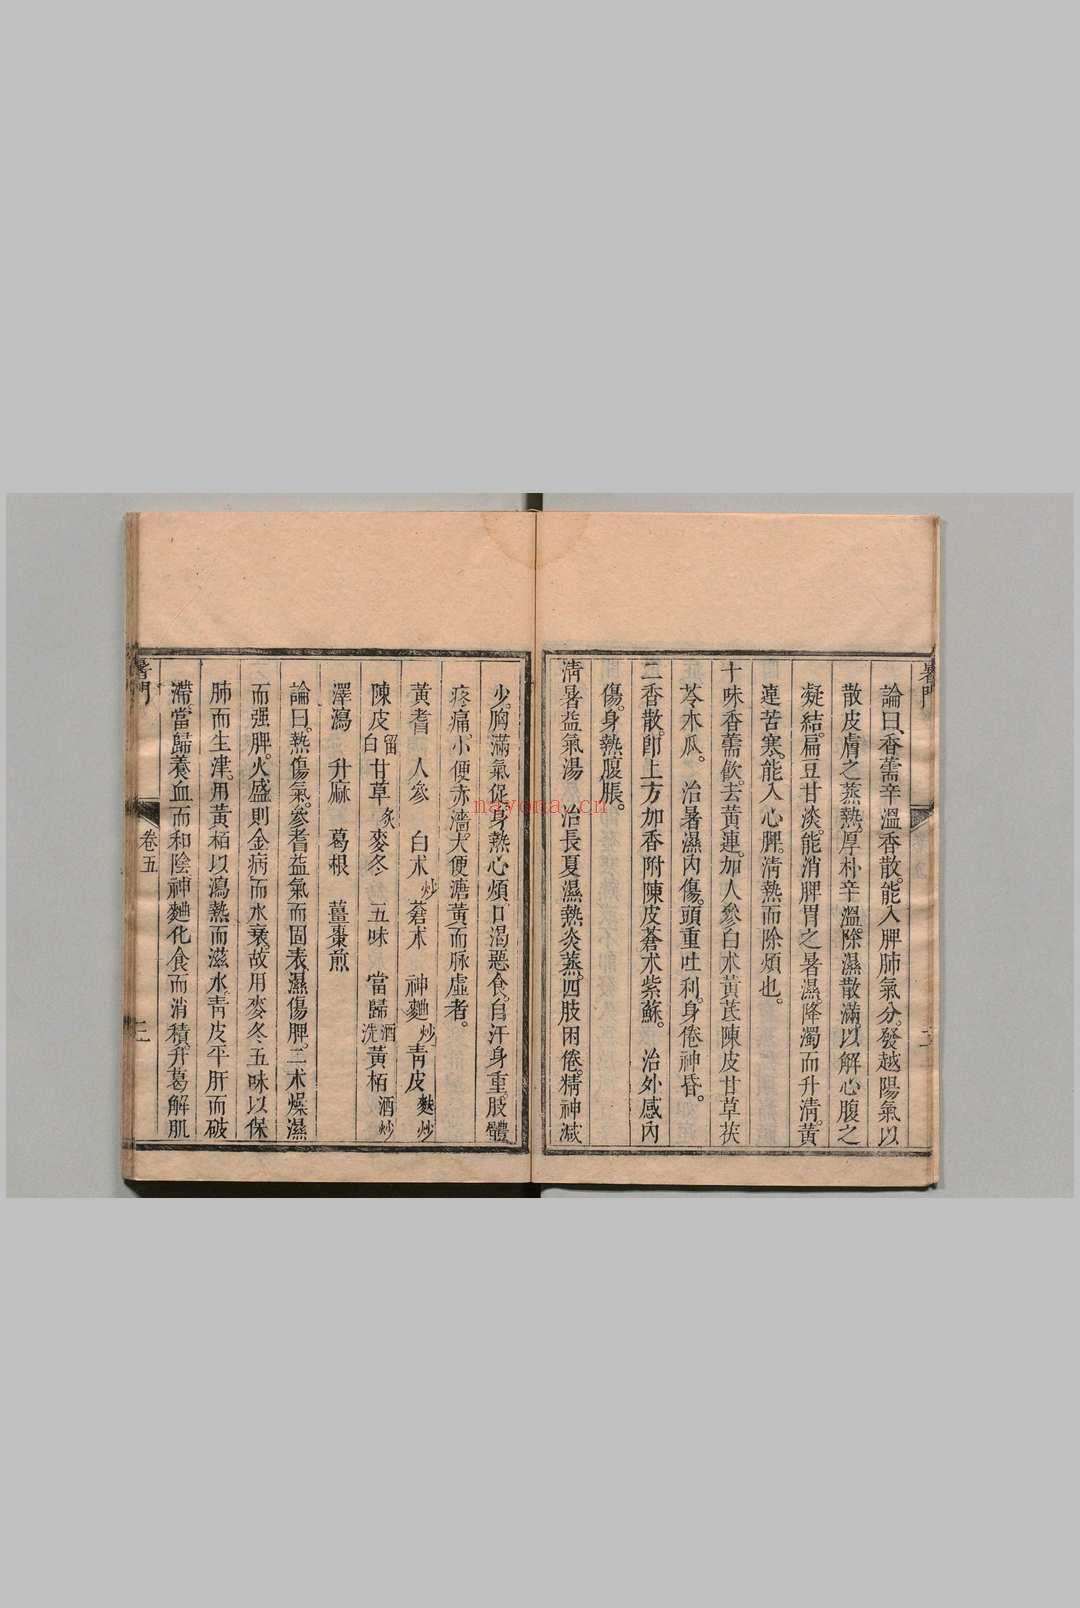 暑門
論曰、香薷辛溫香散。能入脾肺氣分。發越陽氣以
散皮膚之蒸熱。厚朴辛溫除濕散滿以解心腹之
凝結。扁豆甘淡。能消脾胃之暑濕。降濁而升清。黃
連苦寒。能入心脾。清熱而除煩也。
十味香薷飲。去黃連。加人參白朮黃芪陳皮甘草茯
苓木瓜。　治暑濕內傷。頭重吐利。身倦神昏。
二香散。卽上方加香附陳皮蒼朮紫蘇。　治外感內
傷。身熱腹脹。
清暑益氣湯　治長夏濕熱炎蒸。四肢困倦。精神減
少。胸滿氣促。身熱心煩。口渴惡食。自汗身重。肢體
疼痛。小便赤濇。大便溏黃而脉虛者。
黃耆　人參　白朮炒　蒼朮　神麯炒　靑皮麩炒
陳皮留白　甘草炙　麥冬　五味　當歸酒洗　黃栢酒炒
澤瀉　升麻　葛根　薑棗煎
論曰。熱傷氣。參耆益氣而固表。濕傷脾。二朮燥濕
而强脾。火盛則金病而水衰。故用麥冬五味以保
肺而生津。用黃栢以瀉熱而滋水。靑皮平肝而破
滯。當歸養血而和陰。神麯化食而消積。升葛解肌
暑門
卷五
三
nayona.cn